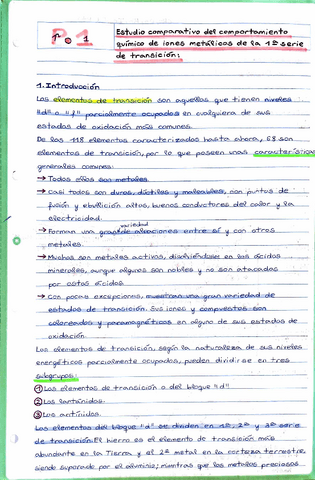 P.1
Estudio comparativo del comportamiento
químico de iones metálicos de la 1ª serie
de transición:
1. Introducción
Los elementos de transición son aquellos que tienen niveles
"d" o "f" parcialmente ocupados en cualquiera de sus
estados de oxidación más comunes.
De los 118 elementos caracterizados hasta ahora, 68 son
elementos de transición, por lo que poseen unas características
generales comunes:
→ Todos ellos son metales.
→ Casi todos son duros, dúctiles y maleables, con puntos de
fusión y ebullición altos, buenos conductores del calor y la
electricidad.
→ Forman una gran variedad de aleaciones entre sí y con otros
metales.
→ Muchos son metales activos, disolviéndose en los ácidos
minerales, aunque algunos son nobles y no son atacados
por estos ácidos.
→ Con pocas excepciones, muestran una gran variedad de
estados de transición. Sus iones y compuestos son
coloreados y paramagnéticos en alguno de sus estados de
oxidación.
Los elementos de transición, según la naturaleza de sus niveles
energéticos parcialmente ocupados, pueden dividirse en tres
subgrupos:
① Los elementos de transición o del bloque "d"
② Los lantánidos.
③ Los actínidos.
Los elementos del bloque "d" se dividen en 1ª, 2ª y 3ª serie
de transición. El hierro es el elemento de transición más
abundante en la Tierra, y el 2º metal en la corteza terrestre,
siendo superado por el aluminio; mientras que los metales preciosos